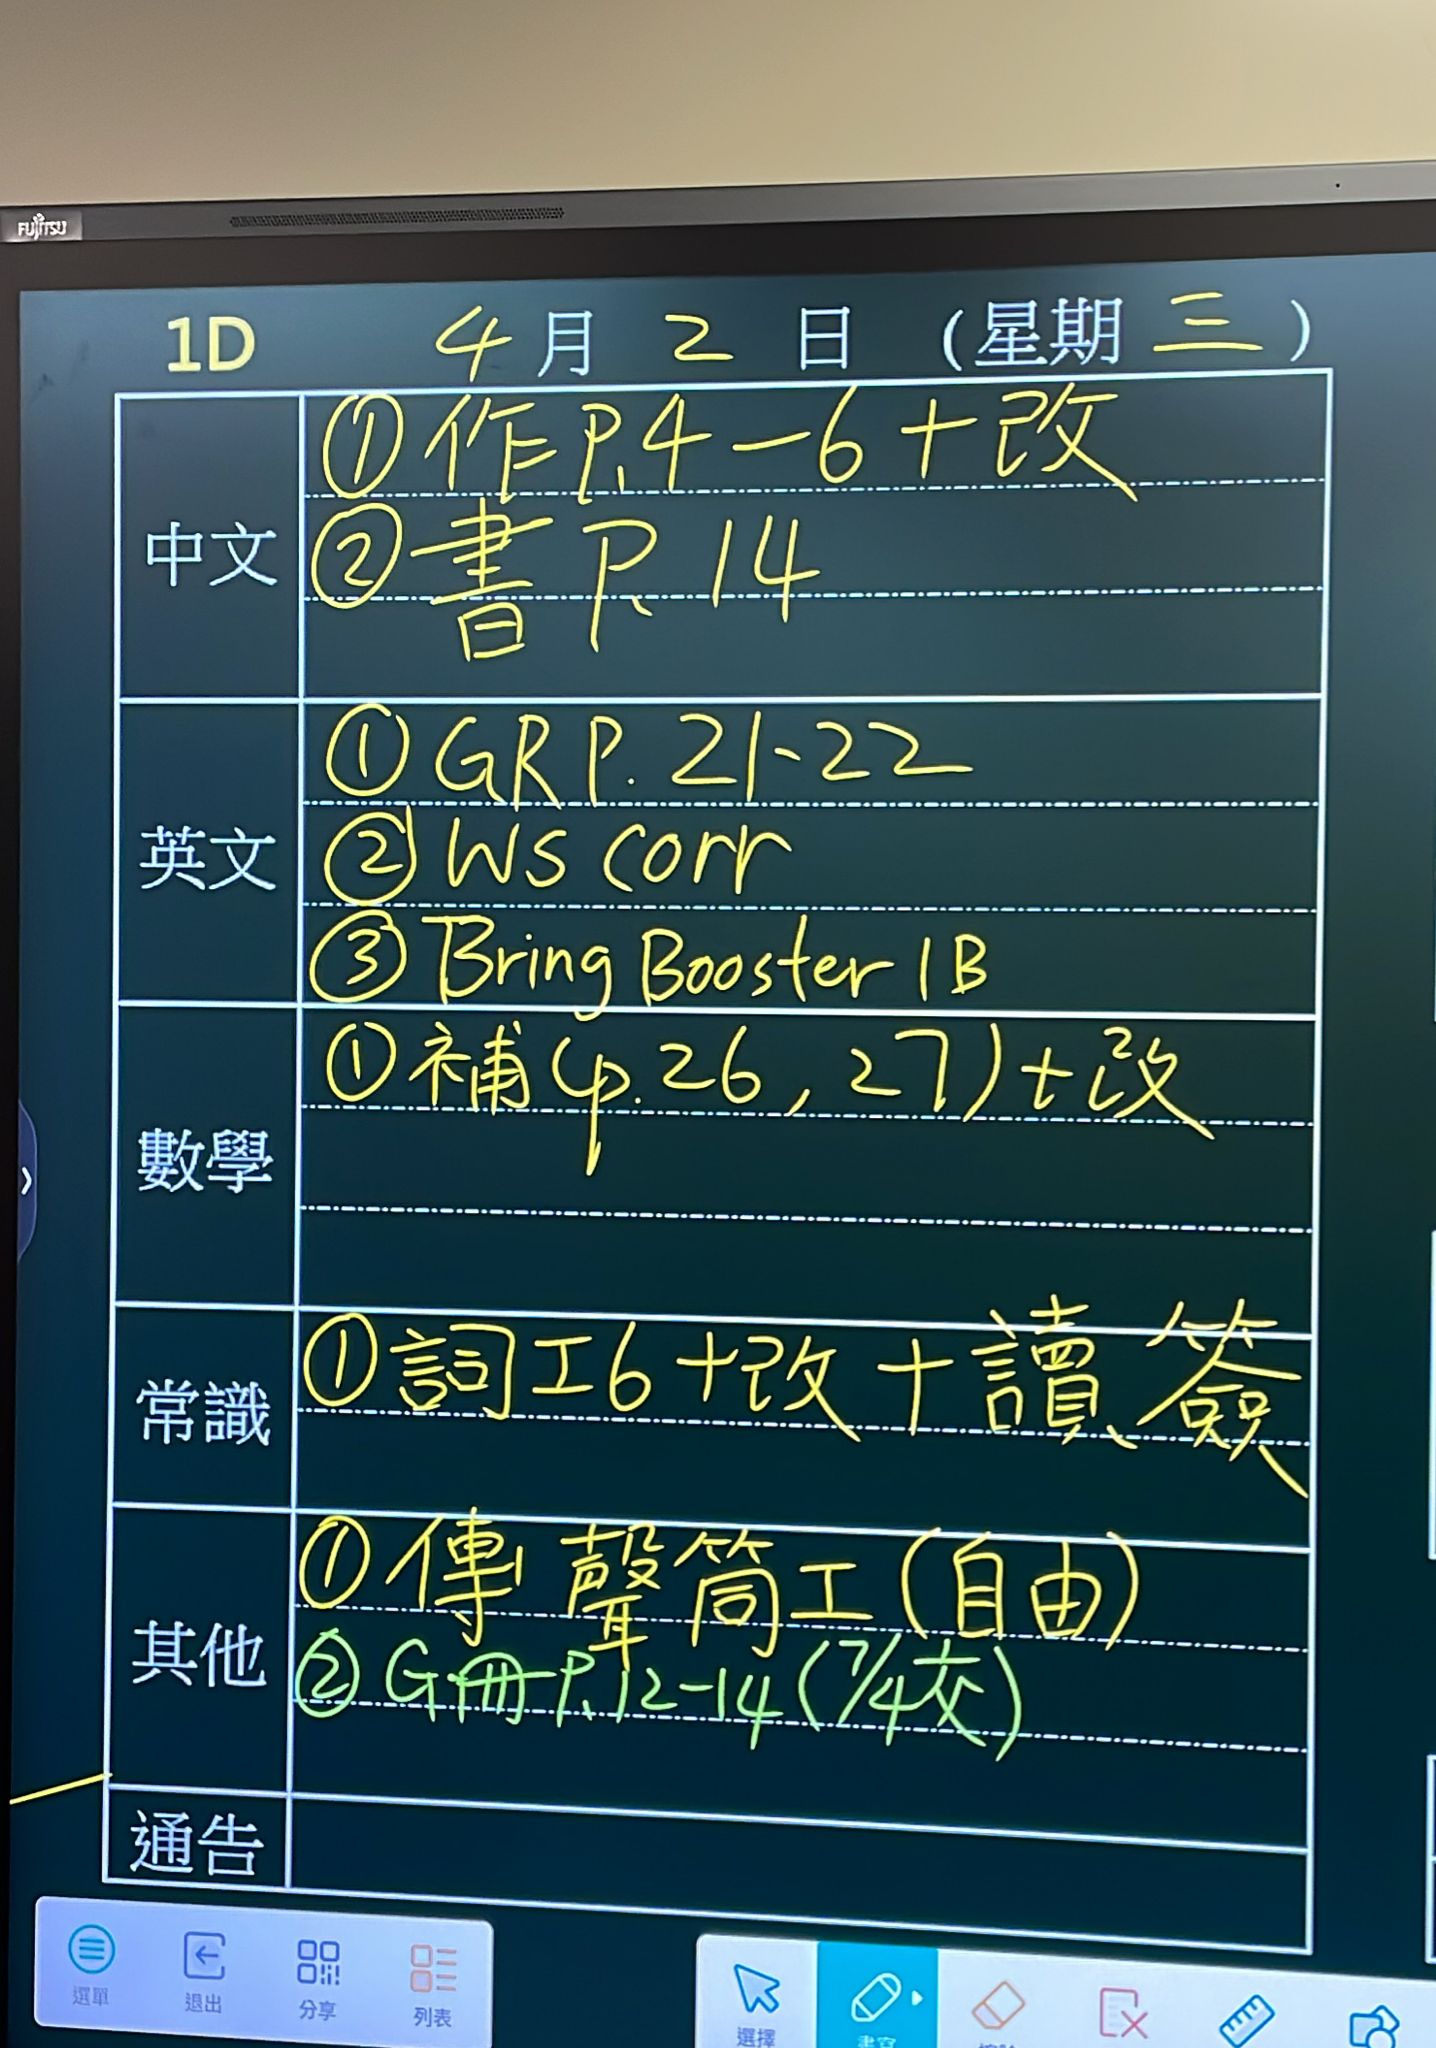 FUJITSU
1D 4月2日(星期三)
中文
①作P.4-6+改
②書P.14
英文
①GR P.21-22
②WS corr
③Bring Booster 1B
數學
①補(p.26,27)+改
常識
①詞工6+改+讀簽
其他
①傳聲筒工(自由)
②G冊P.12-14(7/4交)
通告
選單 退出 分享 列表 選擇